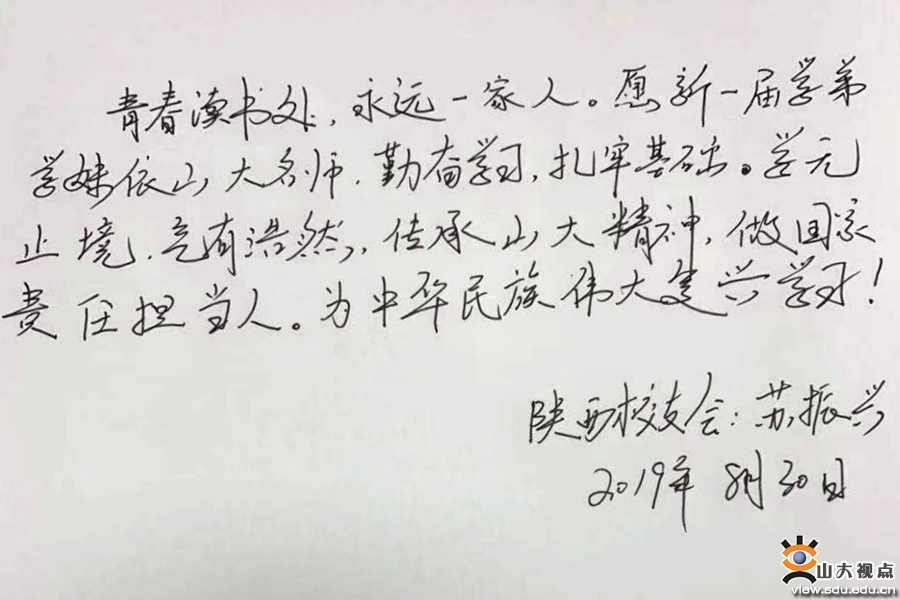 青春读书处，永远一家人。愿新一届学弟
学妹依山大名师，勤奋学习，扎牢基础。学无
止境，气有浩然，传承山大精神，做国家
责任担当人。为中华民族伟大复兴学习！
陕西校友会：苏振兴
2019年8月30日
山大视点
view.sdu.edu.cn